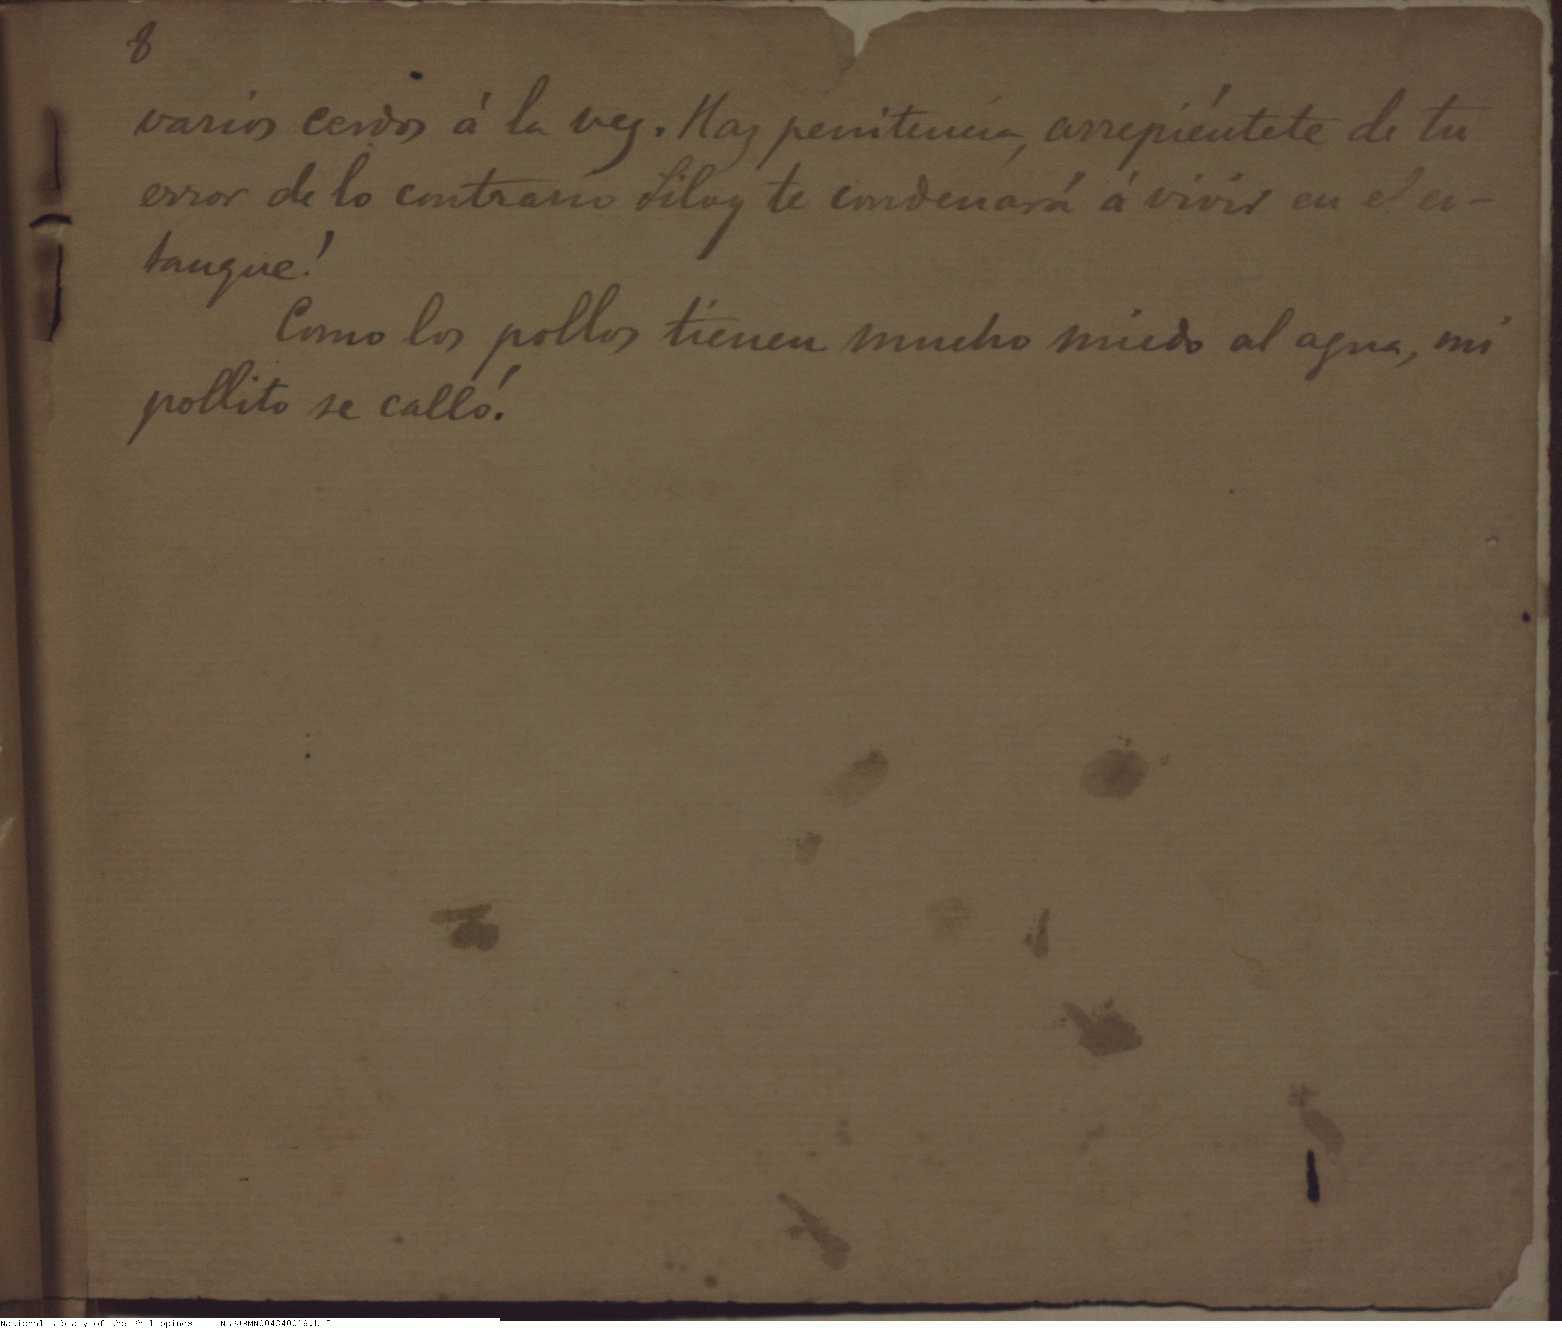 8
varios cerdos á la vez. Haz penitencia, arrepiéntete de tu
error de lo contrario Silag te condenará á vivir en el es-
tanque!
Como los pollos tienen mucho miedo al agua, mi
pollito se calló.
National Library of the Philippines